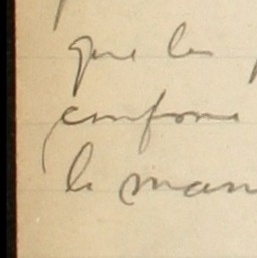 que les
confome
le man